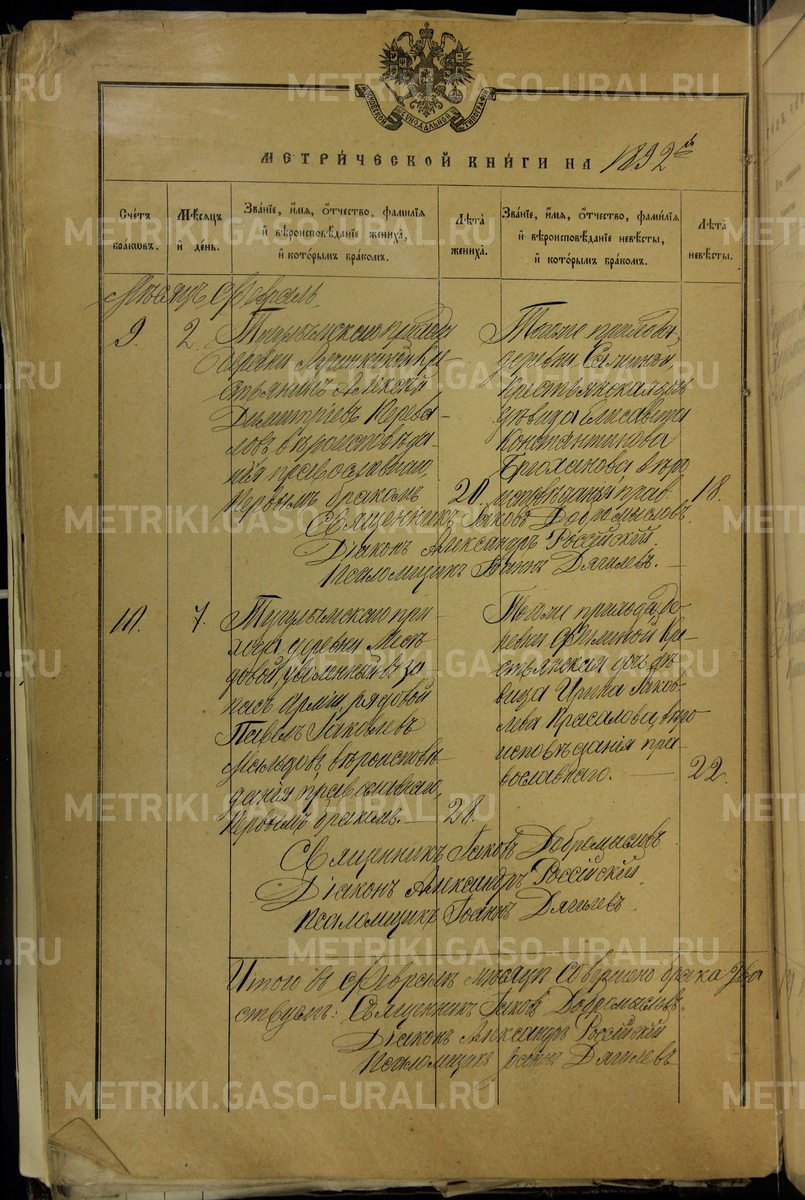 МОСКОВСКОЙ СѴНОДАЛЬНОЙ ТИПОГРАФІИ
МЕТРИ́ЧЕСКОЙ КНИ́ГИ НА 1892 й
Сче́тъ бра́ковъ.
Мѣ́сяцъ и҆ де́нь.
Зва́нїе, и҆́мя, ѻ҆́тчество, фами́лїя и҆ вѣроисповѣ́данїе жениха̀, и҆ кото́рымъ бра́комъ.
Лѣ́та жениха̀.
Зва́нїе, и҆́мя, ѻ҆́тчество, фами́лїя и҆ вѣроисповѣ́данїе невѣ́сты, и҆ кото́рымъ бра́комъ.
Лѣ́та невѣ́сты.
Мѣсяцъ Февраль
9. 2. Тугулымскаго прихода
деревни Лучинкиной кре-
стьянинъ Алексѣй
Димитріевъ
вѣроисповѣда-
нія православнаго
первымъ бракомъ 20.
Тогоже прихода,
деревни
крестьянская дочь
дѣвица Елисавета
Константинова
вѣро
исповѣданія прав. 18.
Священникъ Іаковъ Добромысловъ.
Діаконъ Александръ Россійскій.
Псаломщикъ Іоаннъ Дягилевъ.
10. 7. Тугулымскаго при-
хода деревни Мед-
вѣдовой, уволенный въ за-
пасъ арміи рядовой
Павелъ Іаковлевъ
Мальцовъ, вѣроисповѣ-
данія православнаго,
первымъ бракомъ. 28.
Тогоже прихода, де-
ревни Филиной кре-
стьянская дочь дѣ-
вица Ирина Іаков-
лева вѣро
исповѣданія пра-
вославнаго. 22.
Священникъ Іаковъ Добромысловъ
Діаконъ Александръ Россійскій
Псаломщикъ Іоаннъ Дягилевъ.
Итого въ Февралѣ мѣсяцѣ совершено брака два
Священникъ Іаковъ Добромысловъ
Діаконъ Александръ Россійскій
Псаломщикъ Іоаннъ Дягилевъ
METRIKI.GASO-URAL.RU